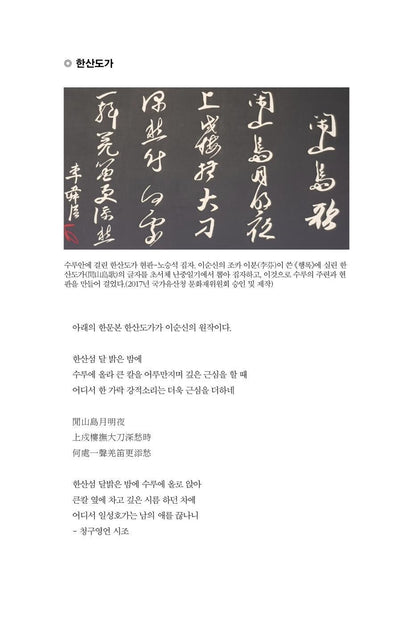 한산도가
閑山島歌
閑山島月明夜
上戍樓撫大刀
深愁時何處
一聲羌笛更添愁
李舜臣
수루안에 걸린 한산도가 현판-노승석 집자. 이순신의 조카 이분(李芬)이 쓴 《행록》에 실린 한
산도가(閑山島歌)의 글자를 초서체 난중일기에서 뽑아 집자하고, 이것으로 수루의 주련과 현
판을 만들어 걸었다.(2017년 국가유산청 문화재위원회 승인 및 제작)
아래의 한문본 한산도가가 이순신의 원작이다.
한산섬 달 밝은 밤에
수루에 올라 큰 칼을 어루만지며 깊은 근심을 할 때
어디서 한 가락 강적소리는 더욱 근심을 더하네
閒山島月明夜
上戍樓撫大刀深愁時
何處一聲羌笛更添愁
한산섬 달밝은 밤에 수루에 올로 앉아
큰칼 옆에 차고 깊은 시름 하던 차에
어디서 일성호가는 남의 애를 끊나니
- 청구영언 시조